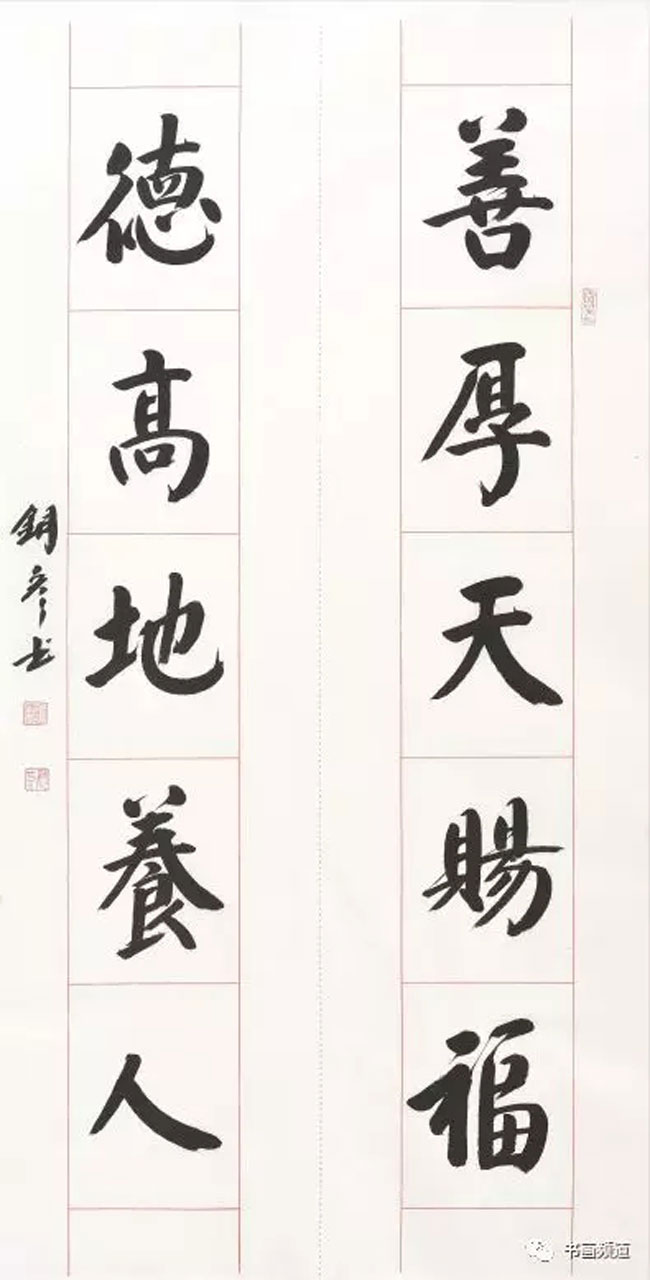 善厚天賜福
德高地養人
书画频道